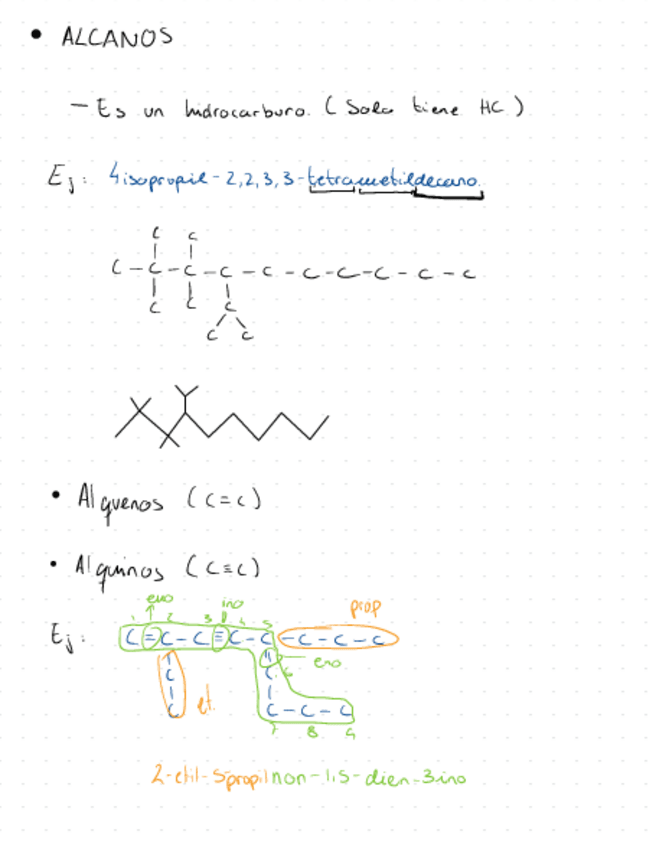 • ALCANOS
— Es un hidrocarburo. (Solo tiene HC)
Ej: 4isopropil-2,2,3,3-tetrametildecano.
C C
C-C-C-C-C-C-C-C-C-C
C C C
C C
• Alquenos (C=C)
• Alquinos (C≡C)
eno ino prop
1 2 3 4 5
Ej: C=C-C≡C-C-C-C-C
eno
C C 6
C et. C-C-C
7 8 9
2-etil-5propilnon-1,5-dien-3ino